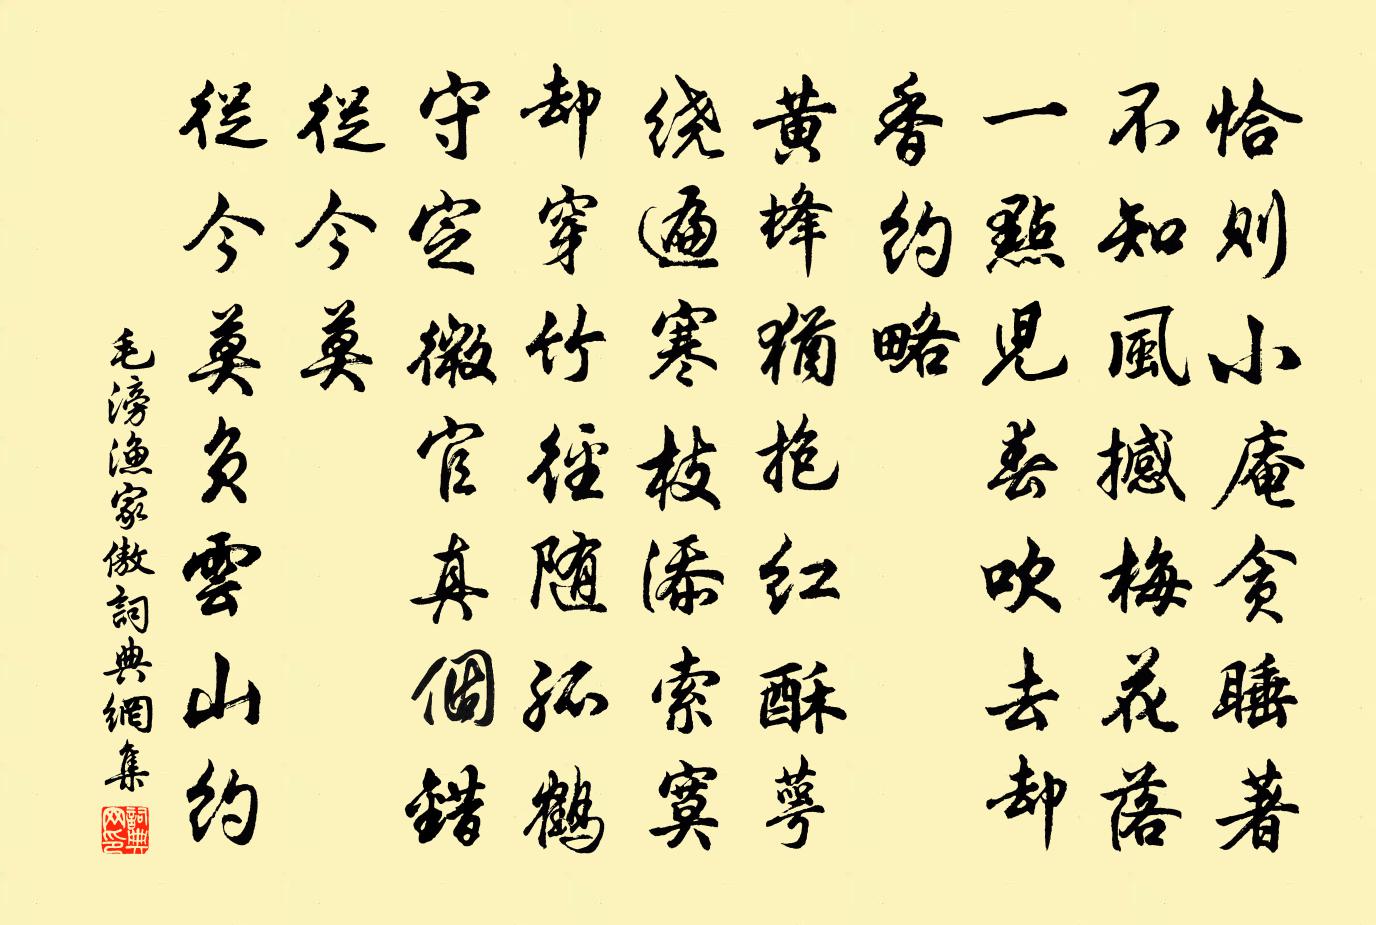 恰則小庵貪睡著
不知風撼梅花落
一點兒春吹去却
香約略
黃蜂猶抱紅酥萼
绕遍寒枝添索寞
却穿竹徑随孤鶴
守定微官真個錯
從今莫
從今莫負雲山約
毛滂漁家傲詞典網集
詞典网印